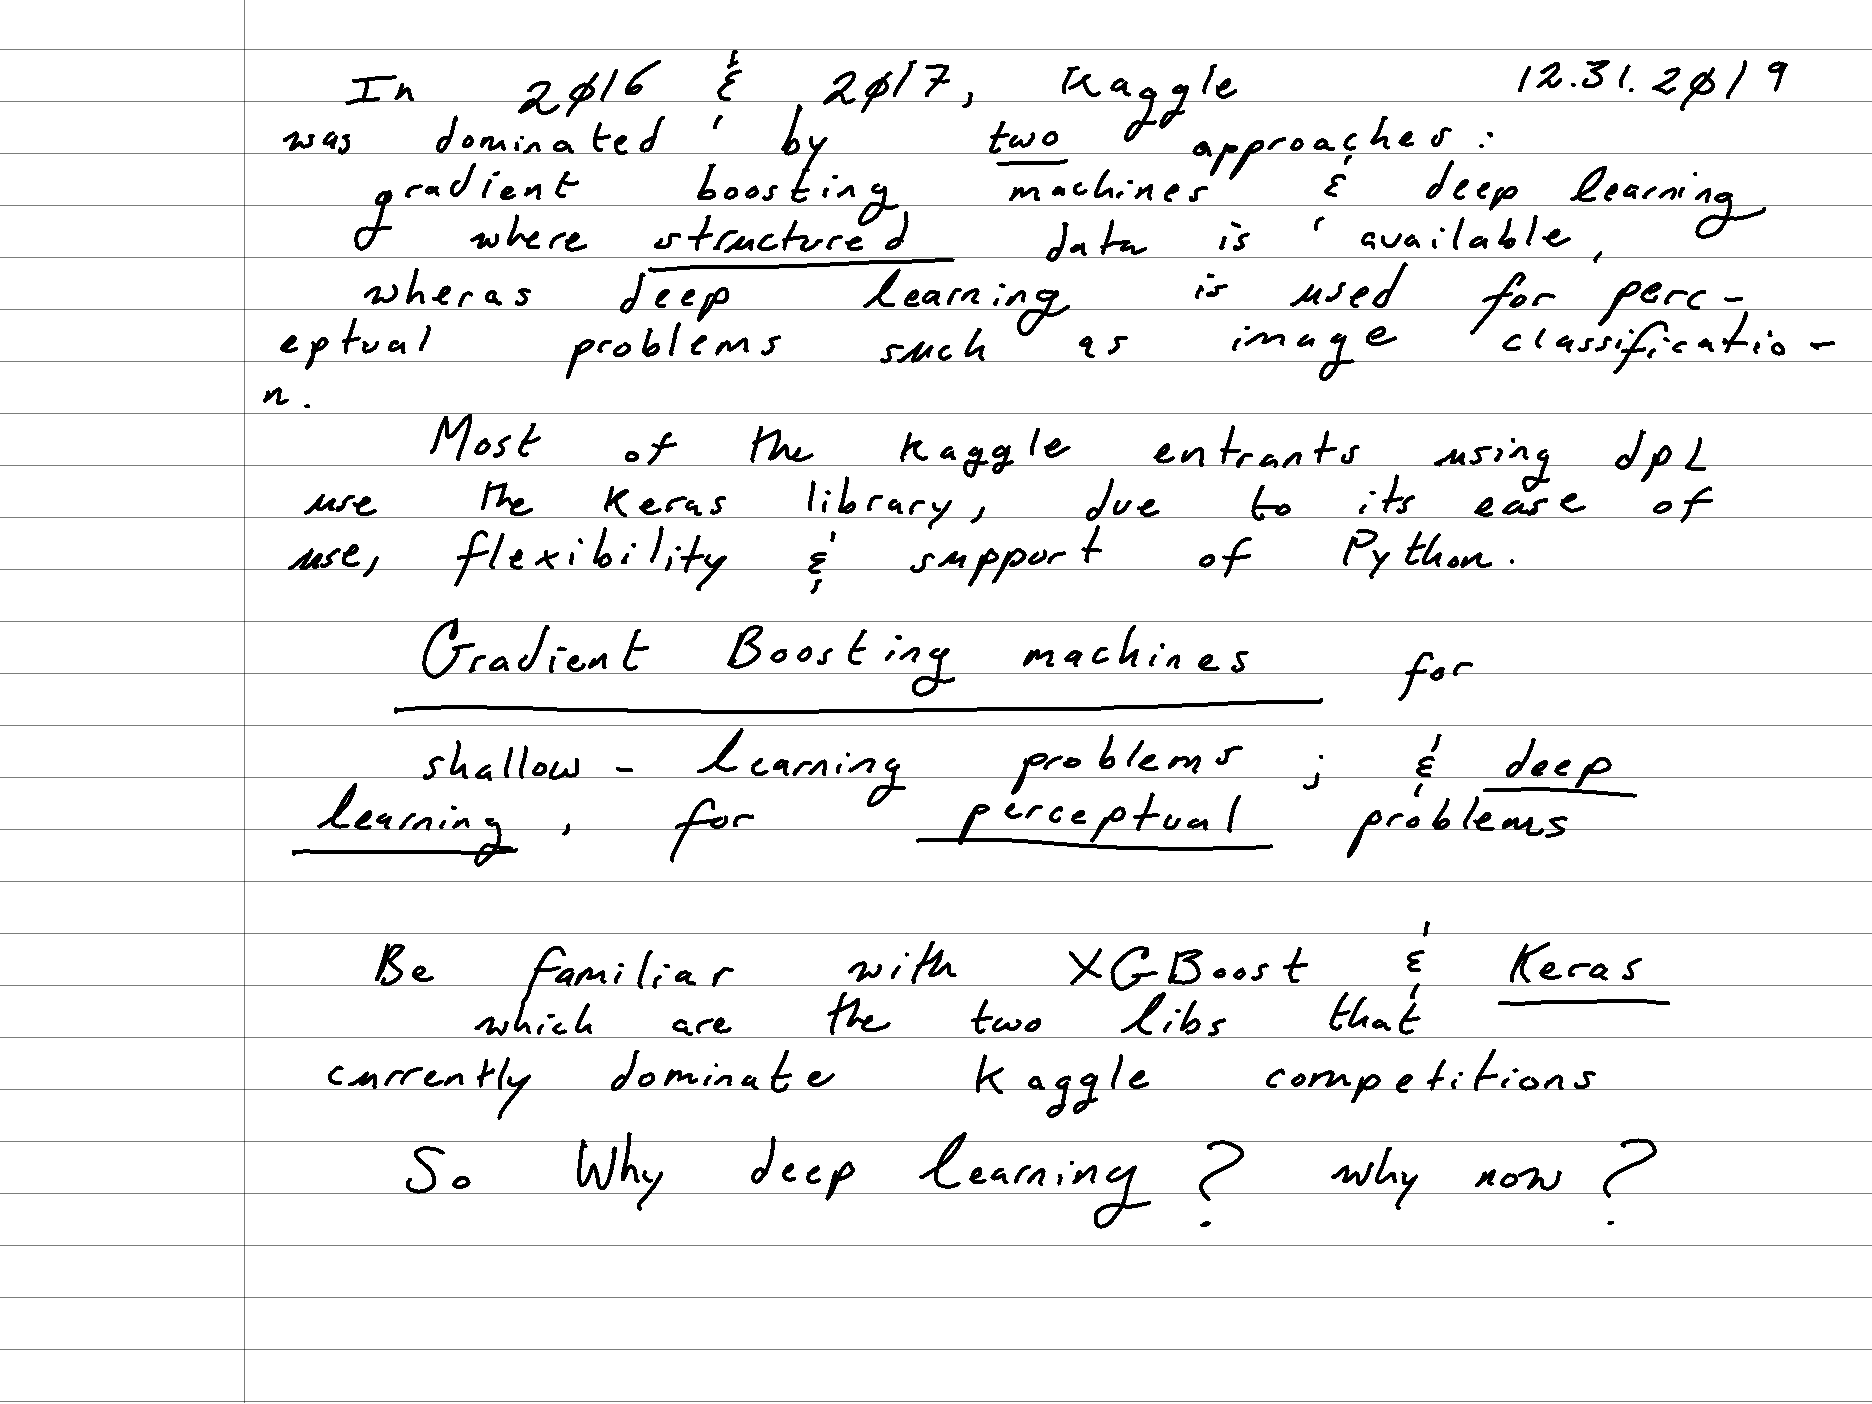 In 2016 & 2017, Kaggle 12.31.2019
was dominated by two approaches:
gradient boosting machines & deep learning
where structured data is available,
wheras deep learning is used for perc-
eptual problems such as image classificatio-
n.
Most of the Kaggle entrants using dpL
use the Keras library, due to its ease of
use, flexibility & support of Python.
Gradient Boosting machines for
shallow-learning problems; & deep
learning, for perceptual problems
Be familiar with XGBoost & Keras
which are the two libs that
currently dominate Kaggle competitions
So Why deep learning? why now?